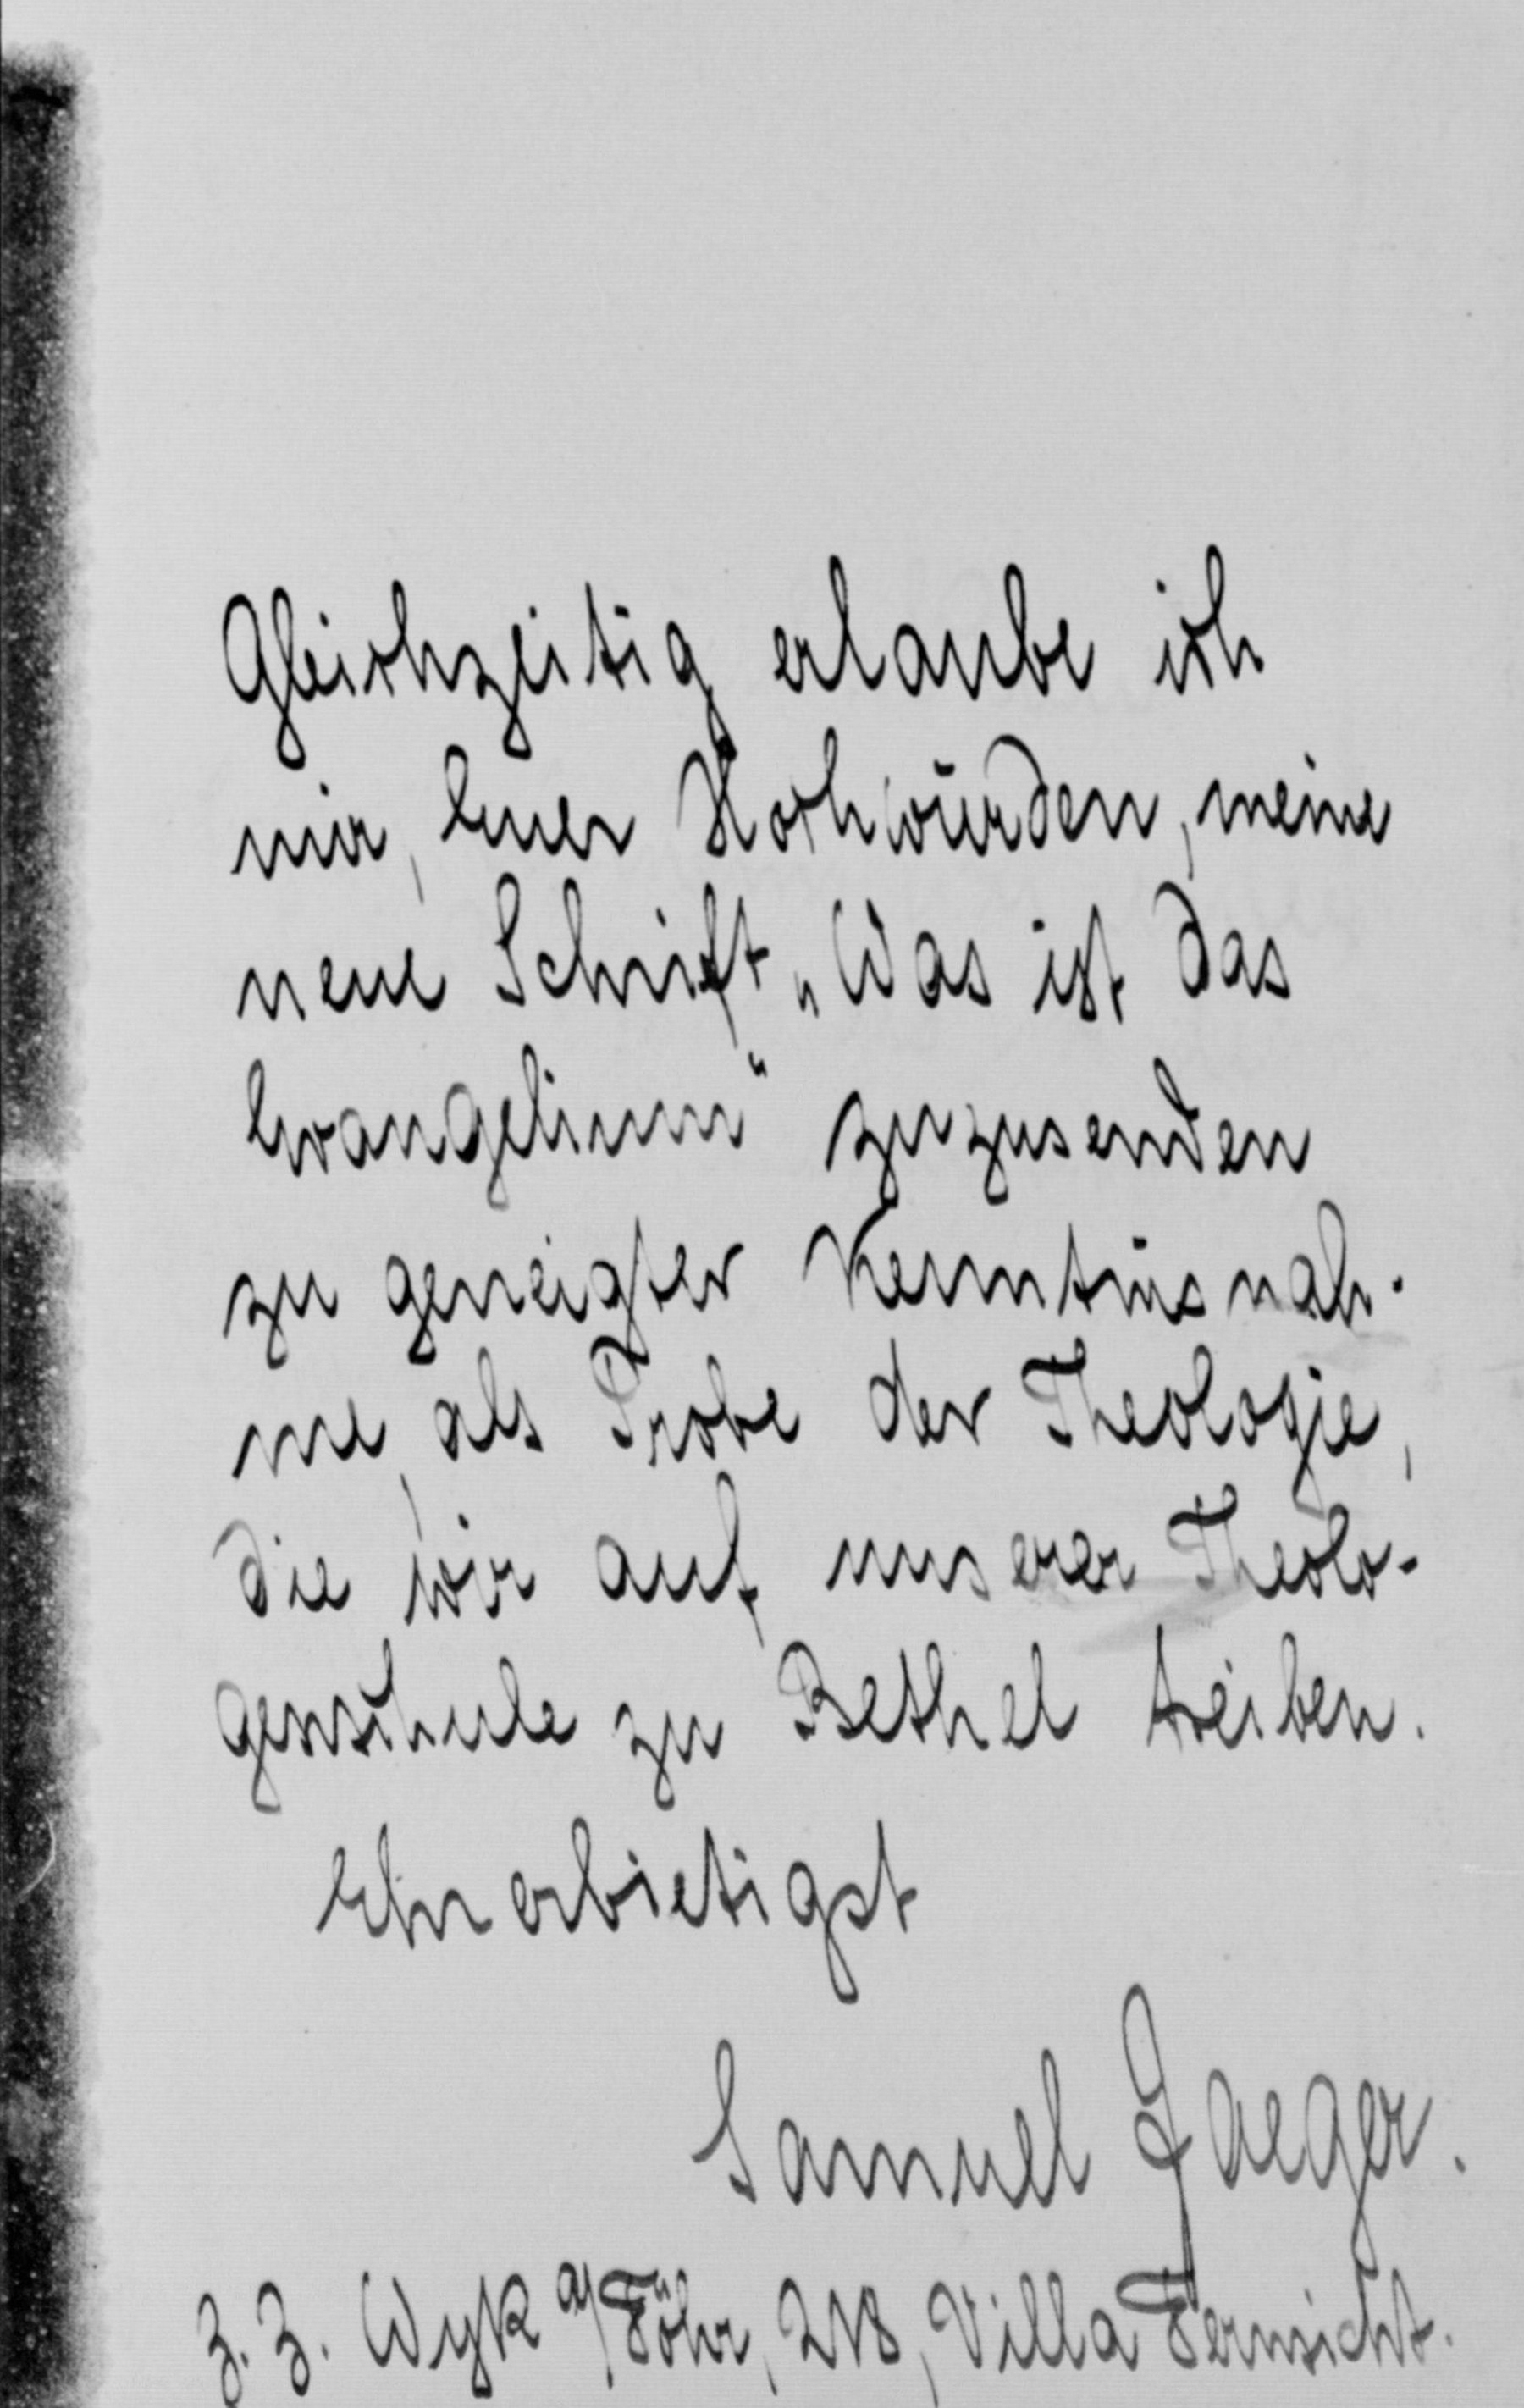 Gleichzeitig erlaube ich
mir, Euer Hochwürden, meine
neue Schrift „Was ist das
Evangelium“ zuzusenden
zu geneigter Kenntnisnah-
me, als Probe der Theologie,
die wir auf unserer Theolo-
genschule zu Bethel treiben.
Ehrerbietigst
Samuel Jaeger.
z. Z. Wyk a/Föhr, 218, Villa Fernsicht.